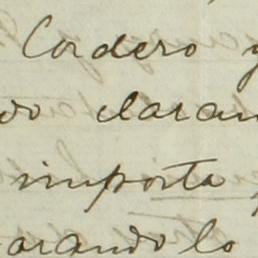 Cordero y
do claran
importa
arando lo